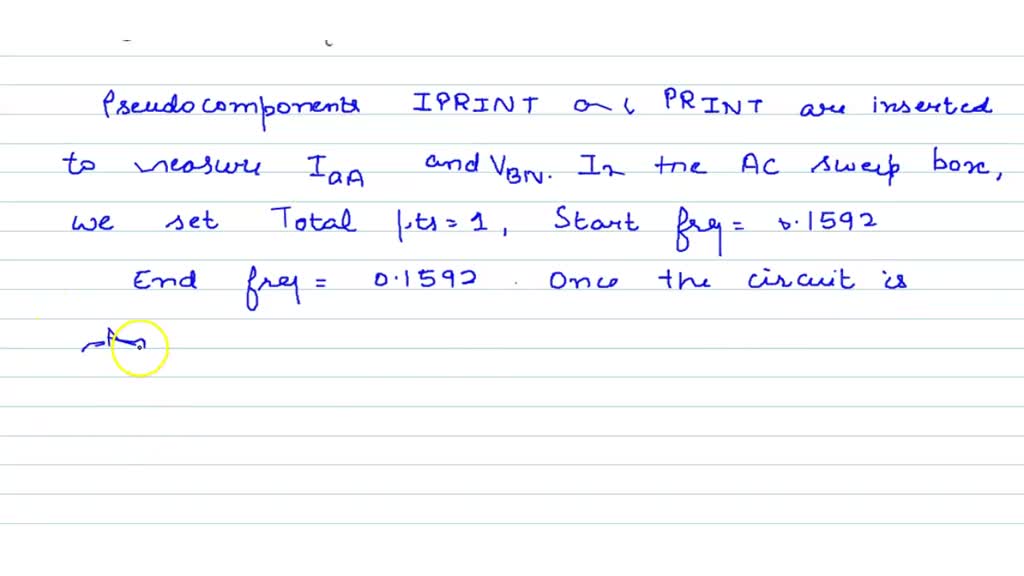 Pseudocomponents IPRINT and PRINT are inserted
to measure IaA and VBN. In the AC sweep box,
we set Total pts = 1, Start freq = 0.1592
End freq = 0.1592. Once the circuit is